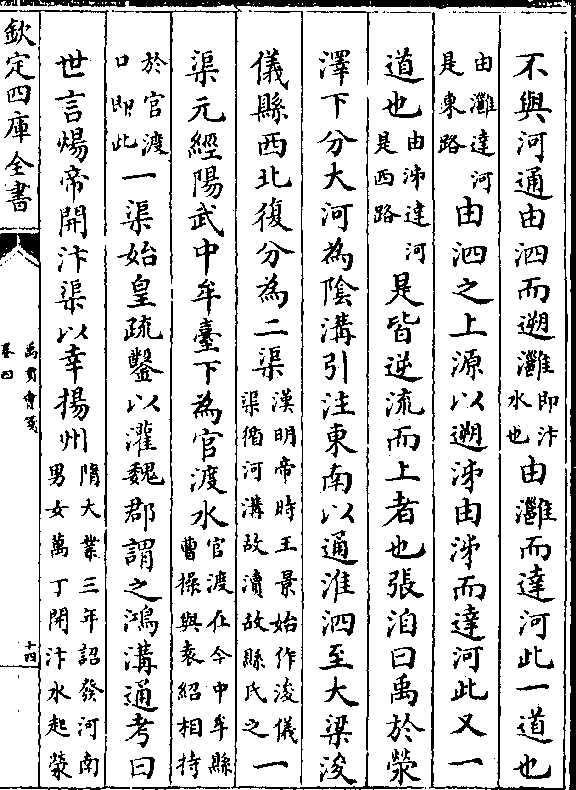 不與河通由泗而遡灉即汴水也由灉而達河此一道也
由灉達河是東路由泗之上源以遡泲由泲而達河此又一
道也由泲達河是西路是皆逆流而上者也張洎曰禹於滎
澤下分大河為陰溝引注東南以通淮泗至大梁浚
儀縣西北復分為二渠漢明帝時王景始作浚儀渠循河溝故瀆故縣氏之一
渠元經陽武中牟臺下為官渡水官渡在今中牟縣曹操與袁紹相持
於官渡口即此一渠始皇疏鑿以灌魏郡謂之鴻溝通考曰
世言煬帝開汴渠以幸揚州隋大業三年詔發河南男女萬丁開汴水起滎
欽定四庫全書
禹貢會箋
卷四
十四